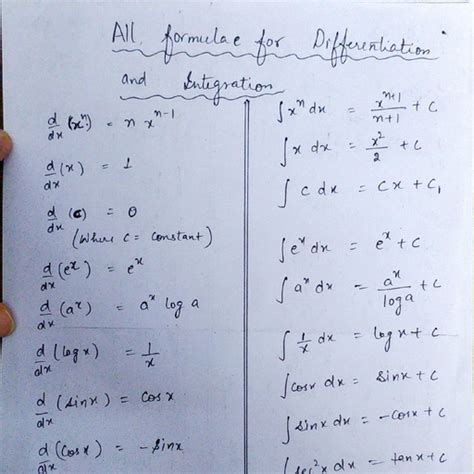 All formulae for Differentiation
and Integration
d/dx (xⁿ) = n xⁿ⁻¹
d/dx (x) = 1
d/dx (c) = 0
(Where c = constant)
d/dx (eˣ) = eˣ
d/dx (aˣ) = aˣ log a
d/dx (log x) = 1/x
d/dx (sin x) = cos x
d/dx (cos x) = - sin x
∫ xⁿ dx = xⁿ⁺¹/n+1 + c
∫ x dx = x²/2 + c
∫ c dx = cx + c₁
∫ eˣ dx = eˣ + c
∫ aˣ dx = aˣ/log a + c
∫ 1/x dx = log x + c
∫ cos x dx = sin x + c
∫ sin x dx = - cos x + c
∫ sec² x dx = tan x + c